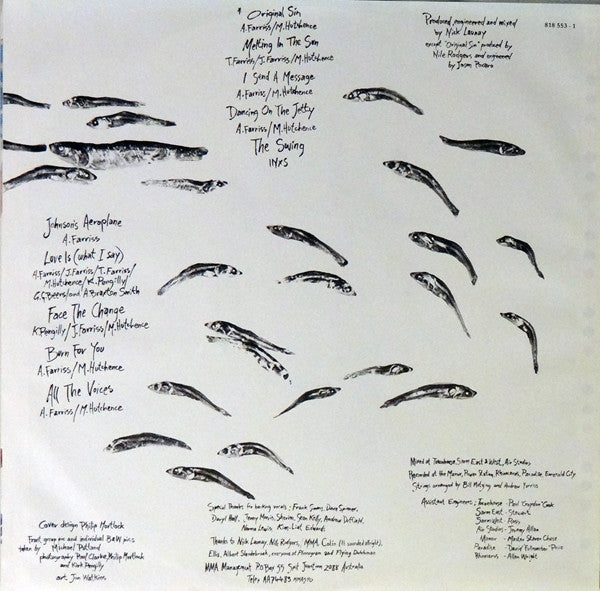 * Original Sin
A. Farriss/M. Hutchence
Melting In The Sun
T. Farriss/J. Farriss/M. Hutchence
I Send A Message
A. Farriss/M. Hutchence
Dancing On The Jetty
A. Farriss/M. Hutchence
The Swing
INXS
Produced, engineered and mixed
by Nick Launay
except "Original Sin" produced by
Nile Rodgers and engineered
by Jason
818 553-1
Johnson's Aeroplane
A. Farriss
Love Is (what I say)
A. Farriss/J. Farriss/T. Farriss/
M. Hutchence/K. Pengilly/
G.G. Beers/and A. Braxton Smith
Face The Change
K. Pengilly/J. Farriss/M. Hutchence
Burn For You
A. Farriss/M. Hutchence
All The Voices
A. Farriss/M. Hutchence
Mixed at Townhouse, Sarm East & West, Air Studios
Recorded at the Manor, Power Station, Rhinoceros, Paradise, Emerald City
Strings arranged by Bill and Andrew Farriss
Assistant Engineers: Townhouse - Paul "Croydon" Cook
Sarm East - Stewart
Sarm West -
Air Studios - Jeremy Allom
Manor - Martin Steven Chase
Paradise - David Price
Rhinoceros - Allan Wright
Special Thanks for backing vocals: Frank Simms, Dave Spinner,
Daryl Hall, Jenny Morris, Sherine, Sean Kelly, Andrew Duffield,
Nanna Lewis, Kim, Lial Edward.
Thanks to Nick Launay, Nile Rodgers, MMA, Colin (I'll sound alright),
Ellis, Albert Slendebroek, everyone at Phonogram and Flying Dutchman
MMA Management PO Box 55 Spit Junction 2088 Australia
Telex AA74483
Cover design Philip Mortlock
Front group pic and individual B&W pics
taken by Michael Putland
photography Paul Clarke, Philip Mortlock
and Kirk Pengilly
art Jim Watkins